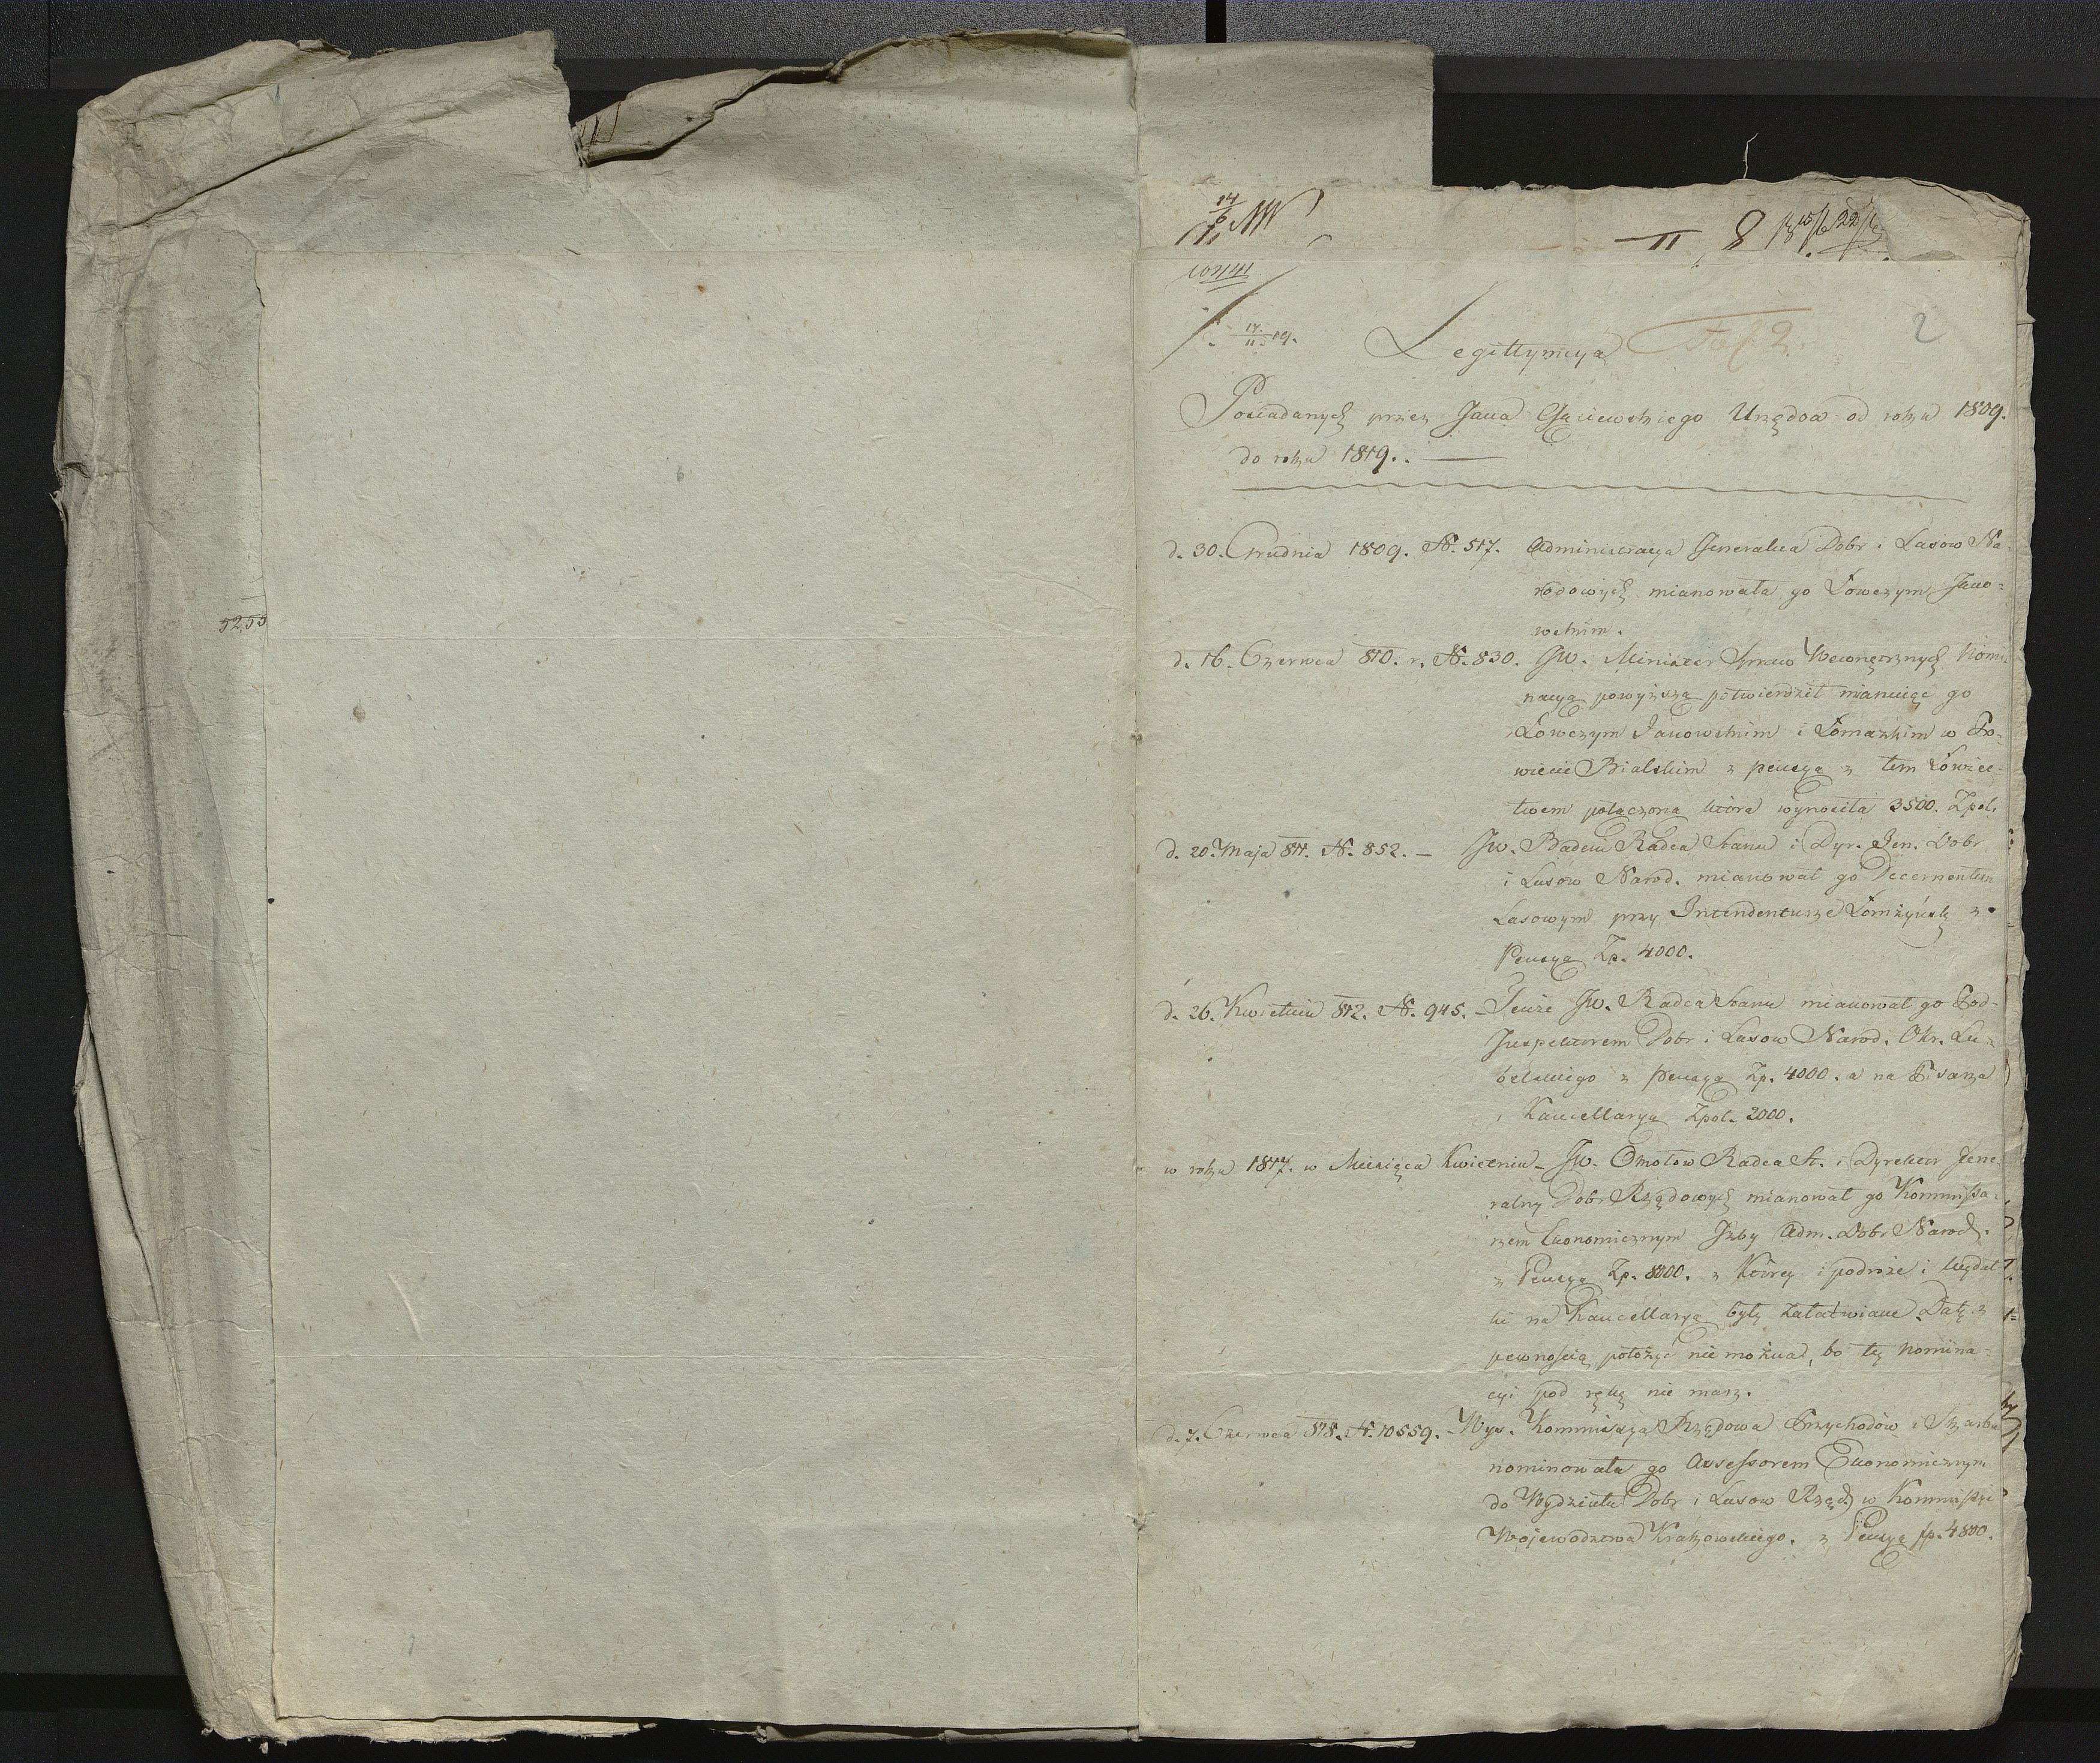 52,53
14/6
II 8
2
17/11 89.
Legittymcya Fol 2.
Posiadanych przez Jana Gąsiewskiego Urzędow od roku 1809.
do roku 1819. . —
d. 30. Grudnia 1809. N. 517. Administracya Generalna Dobr i Lasow Na-
rodowych mianowała go Łowczym Jano=
wskim.
d. 16. Czerwca 810. r. N. 830. JW. Minister Spraw Wewnętrznych Nomi
nacyą powyższą potwierdził mianuiąc go
Łowczym Janowskim i Łomazkim w Po-
wiecie Bialskim z pensyą z tem Łowiec-
twem połączoną która wynosiła 3500. Zpol.
d. 20. Maja 811. N. 852. — JW. Badeni Radca Stanu i Dyr. Jen. Dobr
i Lasow Narod. mianował go Decernentem
Lasowym przy Intendenturze Łomżyńsk z
Pensyą Zp. 4000.
d. 26. Kwietnia 812. N. 945. — Tenże JW. Radca Stanu mianował go Pod-
Inspektorem Dobr i Lasow Narod. Okr. Lu-
belskiego z pensyą Zp. 4000. a na Pisarza
i Kancellaryą Zpol. 2000.
w roku 1817. w Miesiącu Kwietniu — JW. Omotow Radca St. i Dyrektor Jene
ralny Dobr Rządowych mianował go Kommissa-
rzem Ekonomicznym Izby Adm. Dobr Narod.
z Pensyą Zp. 8000. z Którey i podróże i wydat
ki na Kancellaryą były załatwiane. Daty z
pewnością położyć nie można, bo tey Nomina-
cyi pod ręką nie masz.
d. 7. Czerwca 818. N. 10559. — Wys. Kommissya Rządowa Przychodów i Skarbu
nominowała go Assessorem Ekonomicznym
do Wydziału Dobr i Lasow Rząd w Kommissyi
Wojewodztwa Krakowskiego. z Pensyą fp. 4800.